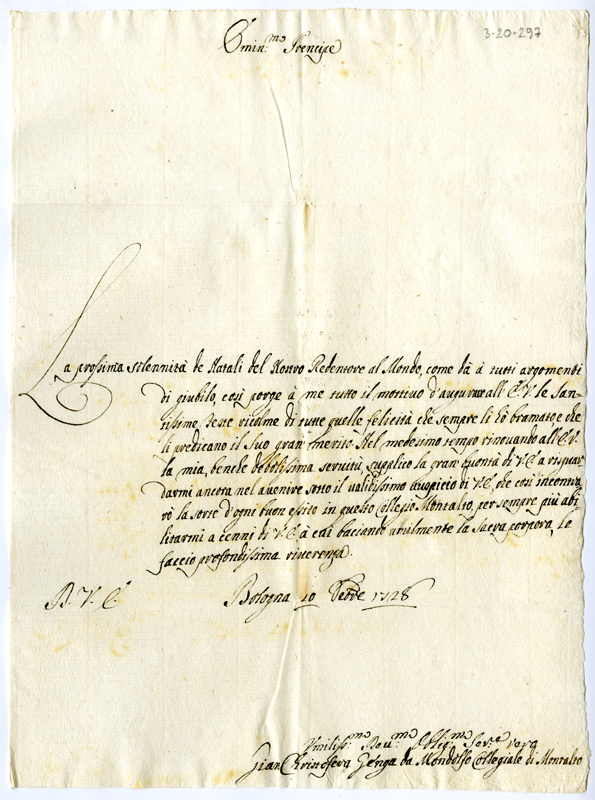 3-20-297
Emin.mo Prencipe
La prossima solennità de Natali del Nostro Redentore al Mondo, come dà à tutti argomenti
di giubilo, così porge à me tutto il mottivo d'augurare all'E.V. le San-
tissime Feste ricolme di tutte quelle felicità che sempre li hò bramato, e che
li predicano il Suo gran merito. Nel medesimo tempo rinovando all'E.V.
la mia, benche debolissima servitù, supplico la gran bontà di V.E. a risguar-
darmi ancora nel avenire sotto il validissimo Auspicio di V.E., che così incontra-
rò la sorte d'ogni buon essito in questo Collegio Montalto, per sempre più abi-
litarmi a cenni di V.E. à cui bacciando umilmente la Sacra porpora, le
faccio profondissima riverenza.
D. V. E.
Bologna 10 Xbre 1728
Umiliss.mo Dev.mo Oblig.mo Ser.re vero
Gian Cristofero Genga da Mondolfo Collegiale di Montalto